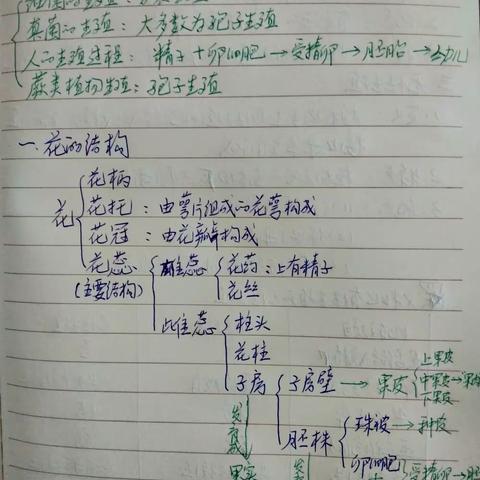 真菌的生殖：大多数为孢子生殖
人的生殖过程：精子+卵细胞→受精卵→胚胎→幼儿
蕨类植物生殖：孢子生殖
一.花的结构
花
花柄
花托：由萼片组成的花萼构成
花冠：由花瓣构成
花蕊
(主要结构)
雄蕊
花药：上有精子
花丝
雌蕊
柱头
花柱
子房
子房壁→果皮
上果皮
中果皮→果肉
下果皮
发育
胚株
珠被→种皮
卵细胞
受精卵→胚
果实